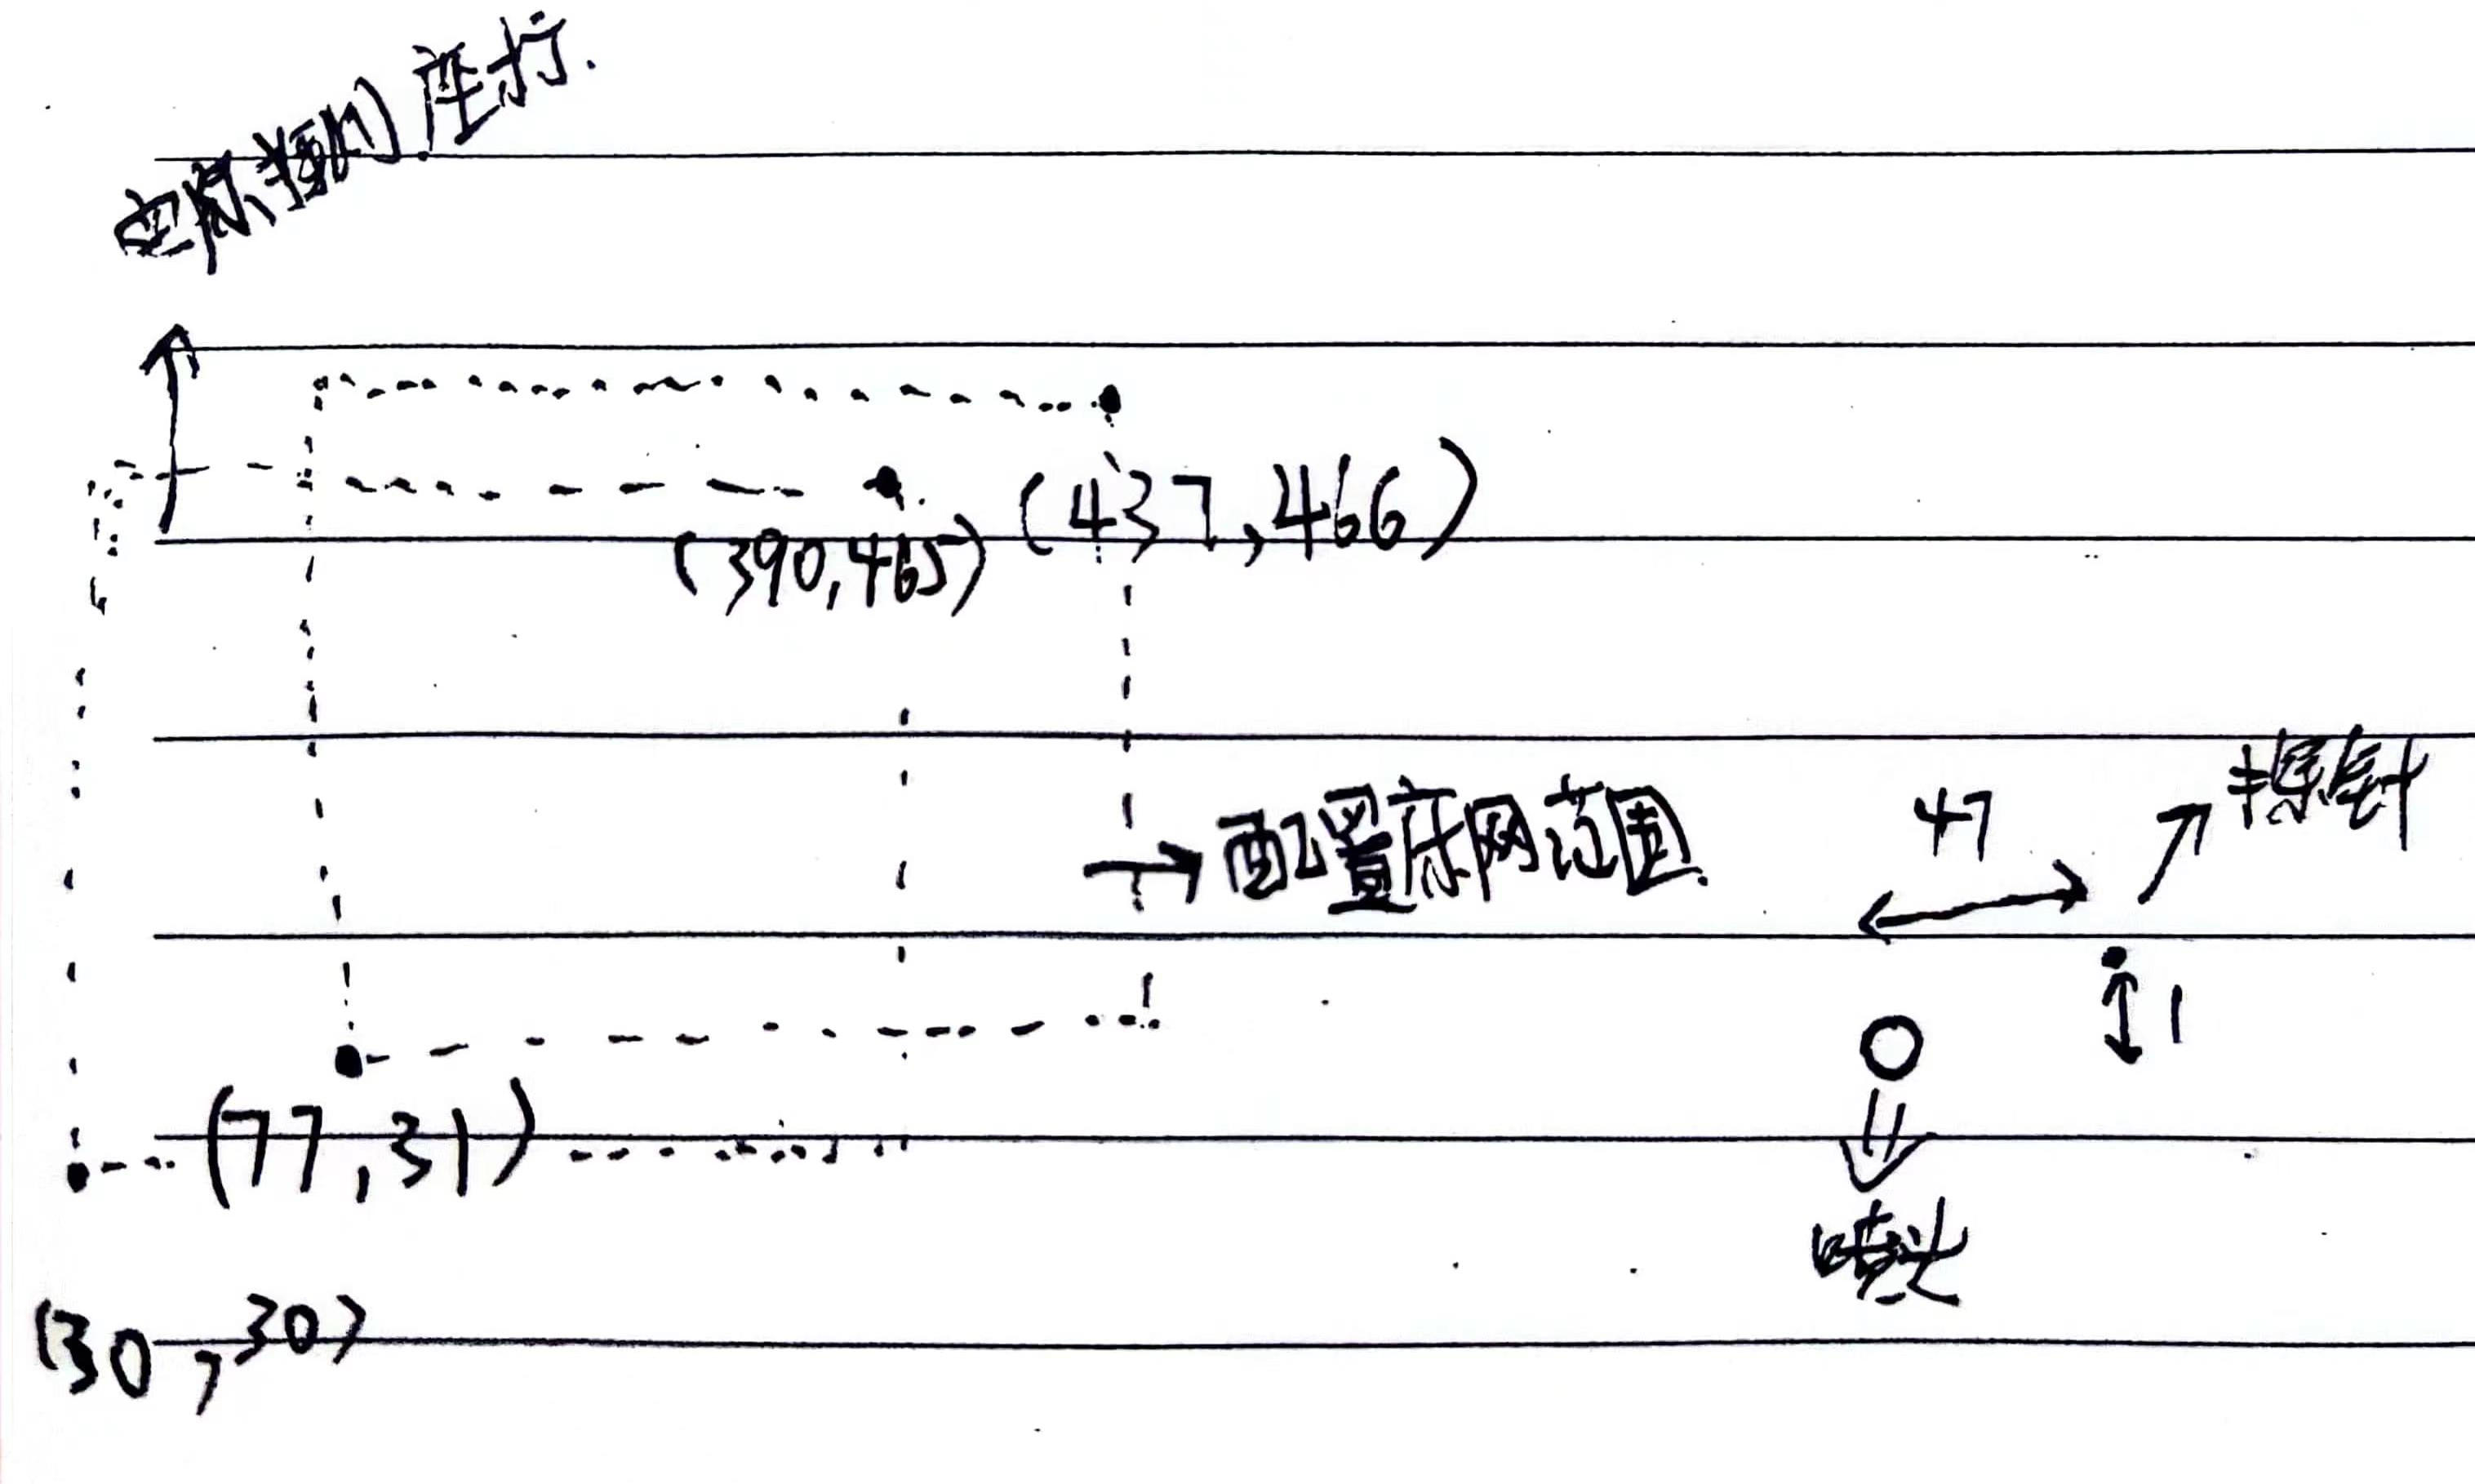 实际探测座标.
(437,466)
(390,465)
探针
47
配置床网范围.
1
(77,31)
喷头
(30,30)